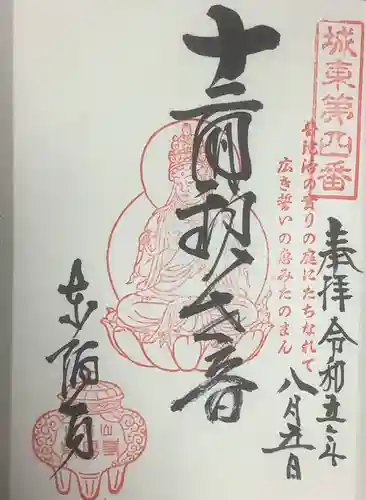 城東第四番
奉拝 令和五年
八月五日
の実りの庭にたちなれて
広き誓いの恵みたのまん
十一面観世音